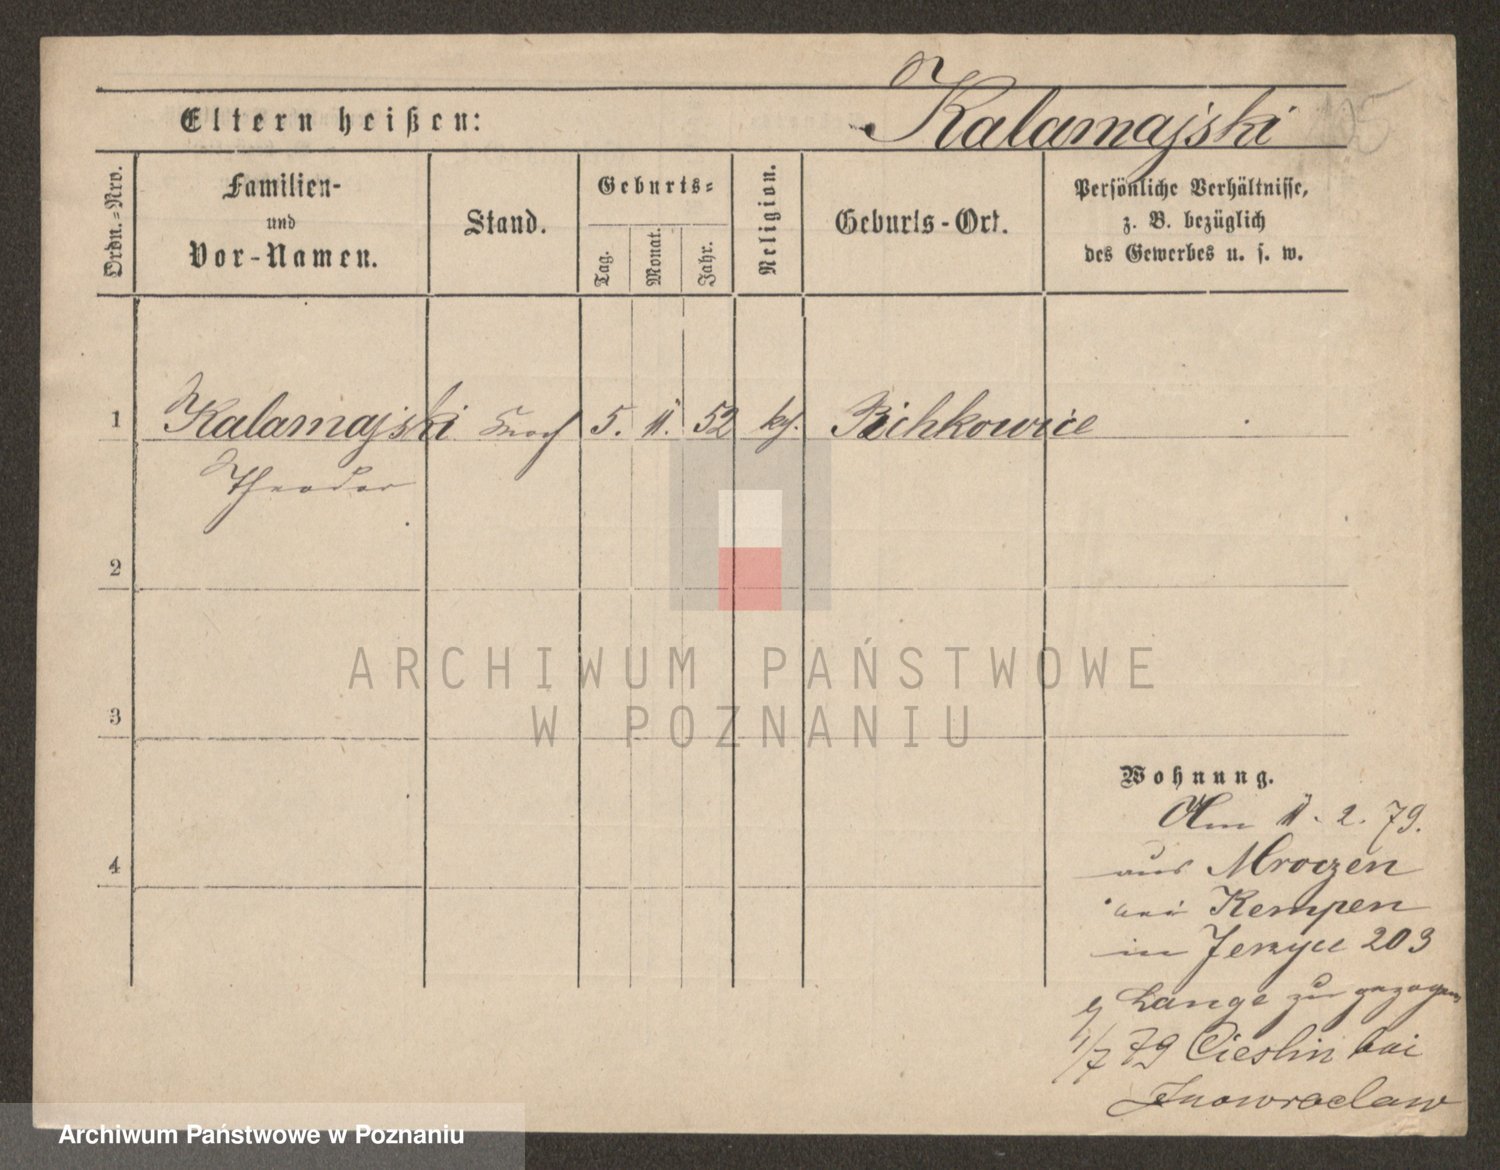 Eltern heißen: Kalamajski 105
Ordn.-Nro.
Familien-
und
Vor-Namen.
Stand.
Geburts-
Tag. Monat. Jahr.
Religion.
Geburts-Ort.
Persönliche Verhältnisse,
z. B. bezüglich
des Gewerbes u. s. w.
1 Kalamajski 5. 11. 52 Bichkowice
Theodor
2
3
4
ARCHIWUM PAŃSTWOWE
W POZNANIU
Wohnung.
Am 11. 2. 79.
aus Mroczen
bei Kempen
in Jerzyce 203
b/ Lange zugezogen
1/7 79 Cieslin bei
Inowraclaw
Archiwum Państwowe w Poznaniu